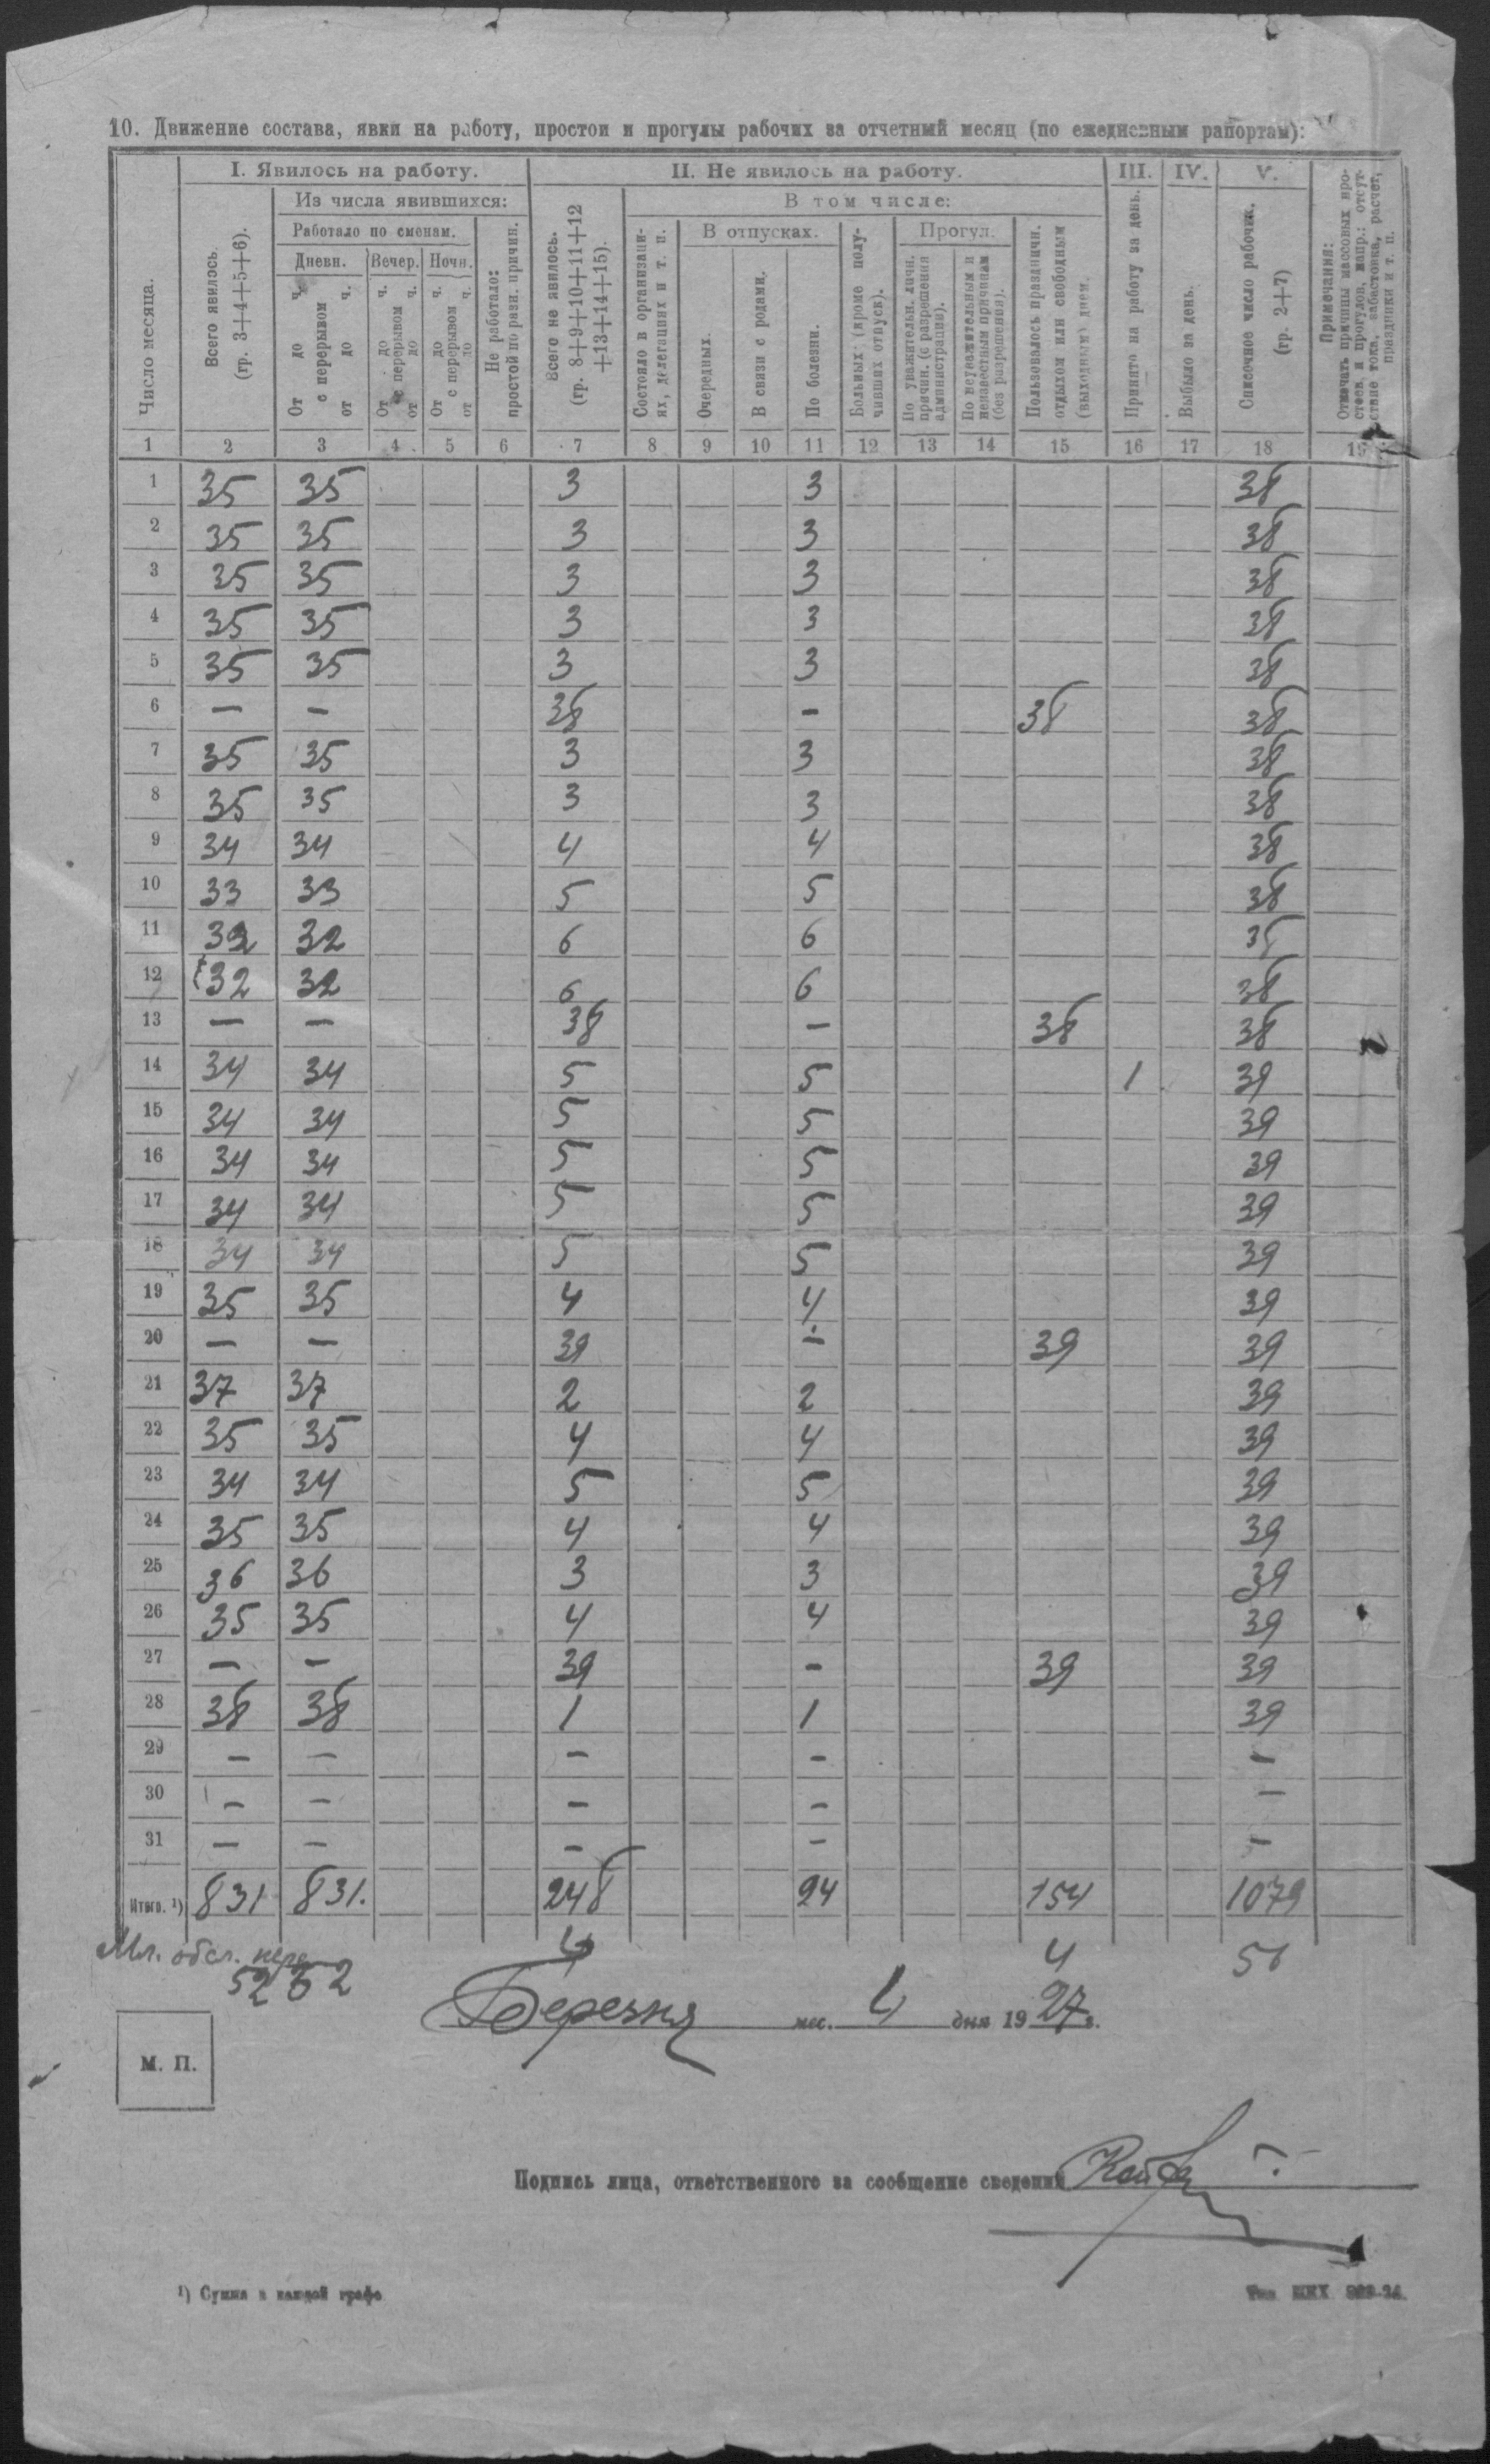 10. Движение состава, явки на работу, простои и прогулы рабочих за отчетный месяц (по ежедневным рапортам):
Число месяца.
I. Явилось на работу.
Всего явилось. (гр. 3+4+5+6).
Из числа явившихся:
Работало по сменам.
Дневн.
От до ч. с перерывом от до ч.
Вечер.
От до ч. с перерывом от до ч.
Ночн.
От до ч. с перерывом от до ч.
Не работало: простой по разн. причин.
II. Не явилось на работу.
Всего не явилось. (гр. 8+9+10+11+12+13+14+15).
В том числе:
Состояло в организациях, делегациях и т. п.
В отпусках.
Очередных.
В связи с родами.
По болезни.
Больных (кроме получивших отпуск).
Прогул.
По уважительн. личн. причин. (с разрешения администрации).
По неуважительным и неизвестным причинам (без разрешения).
Пользовалось праздничн. отдыхом или свободным (выходным) днем.
III.
Принято на работу за день.
IV.
Выбыло за день.
V.
Списочное число рабочих. (гр. 2+7)
Примечания:
Отмечать причины массовых простоев и прогулов, напр.: отсутствие тока, забастовка, расчет, праздники и т. п.
1 2 3 4 5 6 7 8 9 10 11 12 13 14 15 16 17 18 19
1 35 35 3 3 38
2 35 35 3 3 38
3 35 35 3 3 38
4 35 35 3 3 38
5 35 35 3 3 38
6 — — 38 — 38 38
7 35 35 3 3 38
8 35 35 3 3 38
9 34 34 4 4 38
10 33 33 5 5 38
11 32 32 6 6 38
12 32 32 6 6 38
13 — — 38 — 38 38
14 34 34 5 5 1 39
15 34 34 5 5 39
16 34 34 5 5 39
17 34 34 5 5 39
18 34 34 5 5 39
19 35 35 4 4 39
20 — — 39 — 39 39
21 37 37 2 2 39
22 35 35 4 4 39
23 34 34 5 5 39
24 35 35 4 4 39
25 36 36 3 3 39
26 35 35 4 4 39
27 — — 39 — 39 39
28 38 38 1 1 39
29 — — — — —
30 — — — — —
31 — — — — —
Итого. ¹) 831 831. 248 94 154 1079
Мл. обсл. перс 4 4 56
52 52
Березня мес. 4 дня 1927 г.
М. П.
Подпись лица, ответственного за сообщение сведений
¹) Сумма в каждой графе